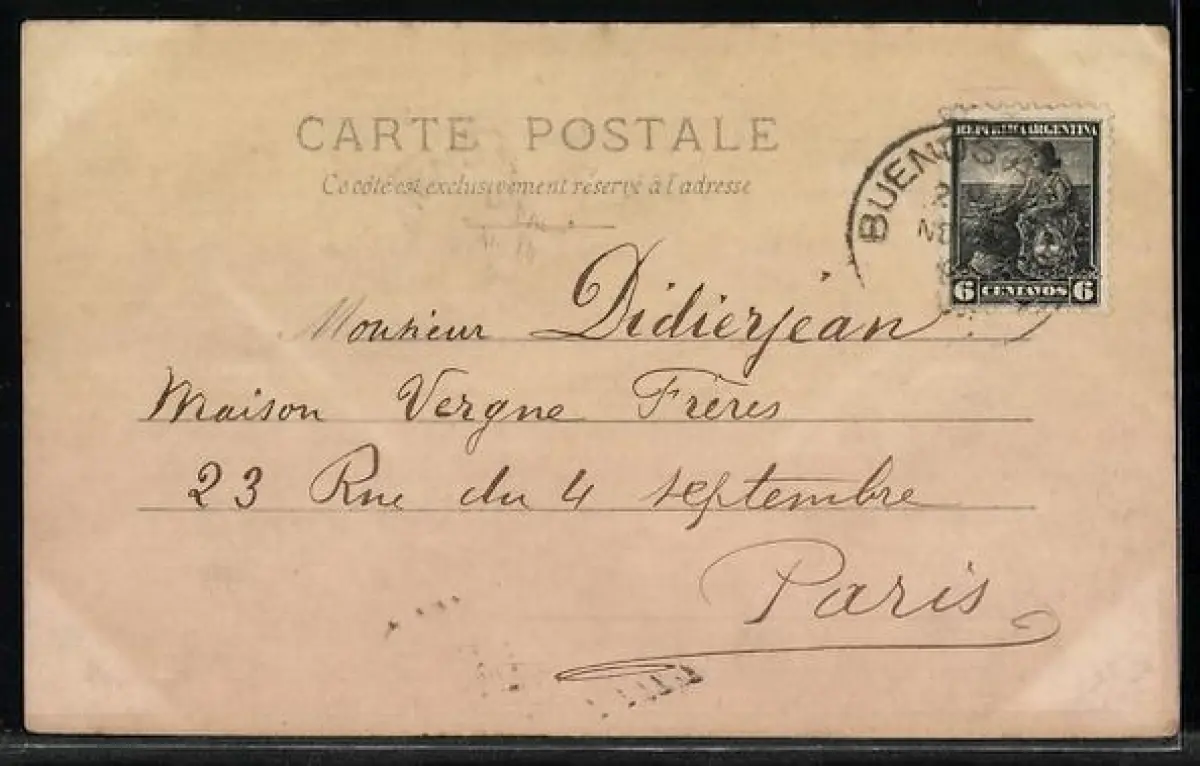 CARTE POSTALE
Ce côté est exclusivement réservé à l'adresse
REPUBLICA ARGENTINA
BUENOS
6 CENTAVOS 6
Monsieur Didierjean
Maison Vergne Frères
23 Rue du 4 septembre
Paris